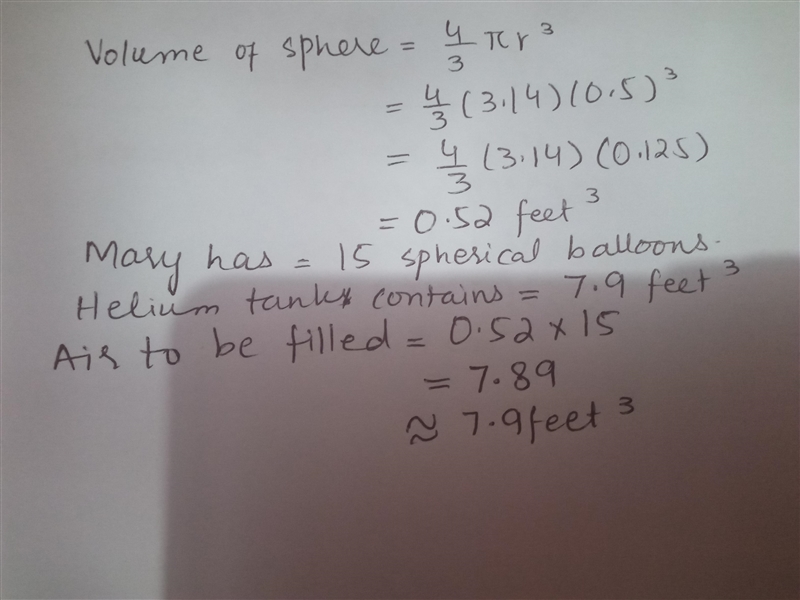 Volume of sphere = 4/3 πr³
= 4/3 (3.14) (0.5)³
= 4/3 (3.14) (0.125)
= 0.52 feet³
Mary has = 15 spherical balloons.
Helium tank contains = 7.9 feet³
Air to be filled = 0.52 × 15
= 7.89
≈ 7.9feet³